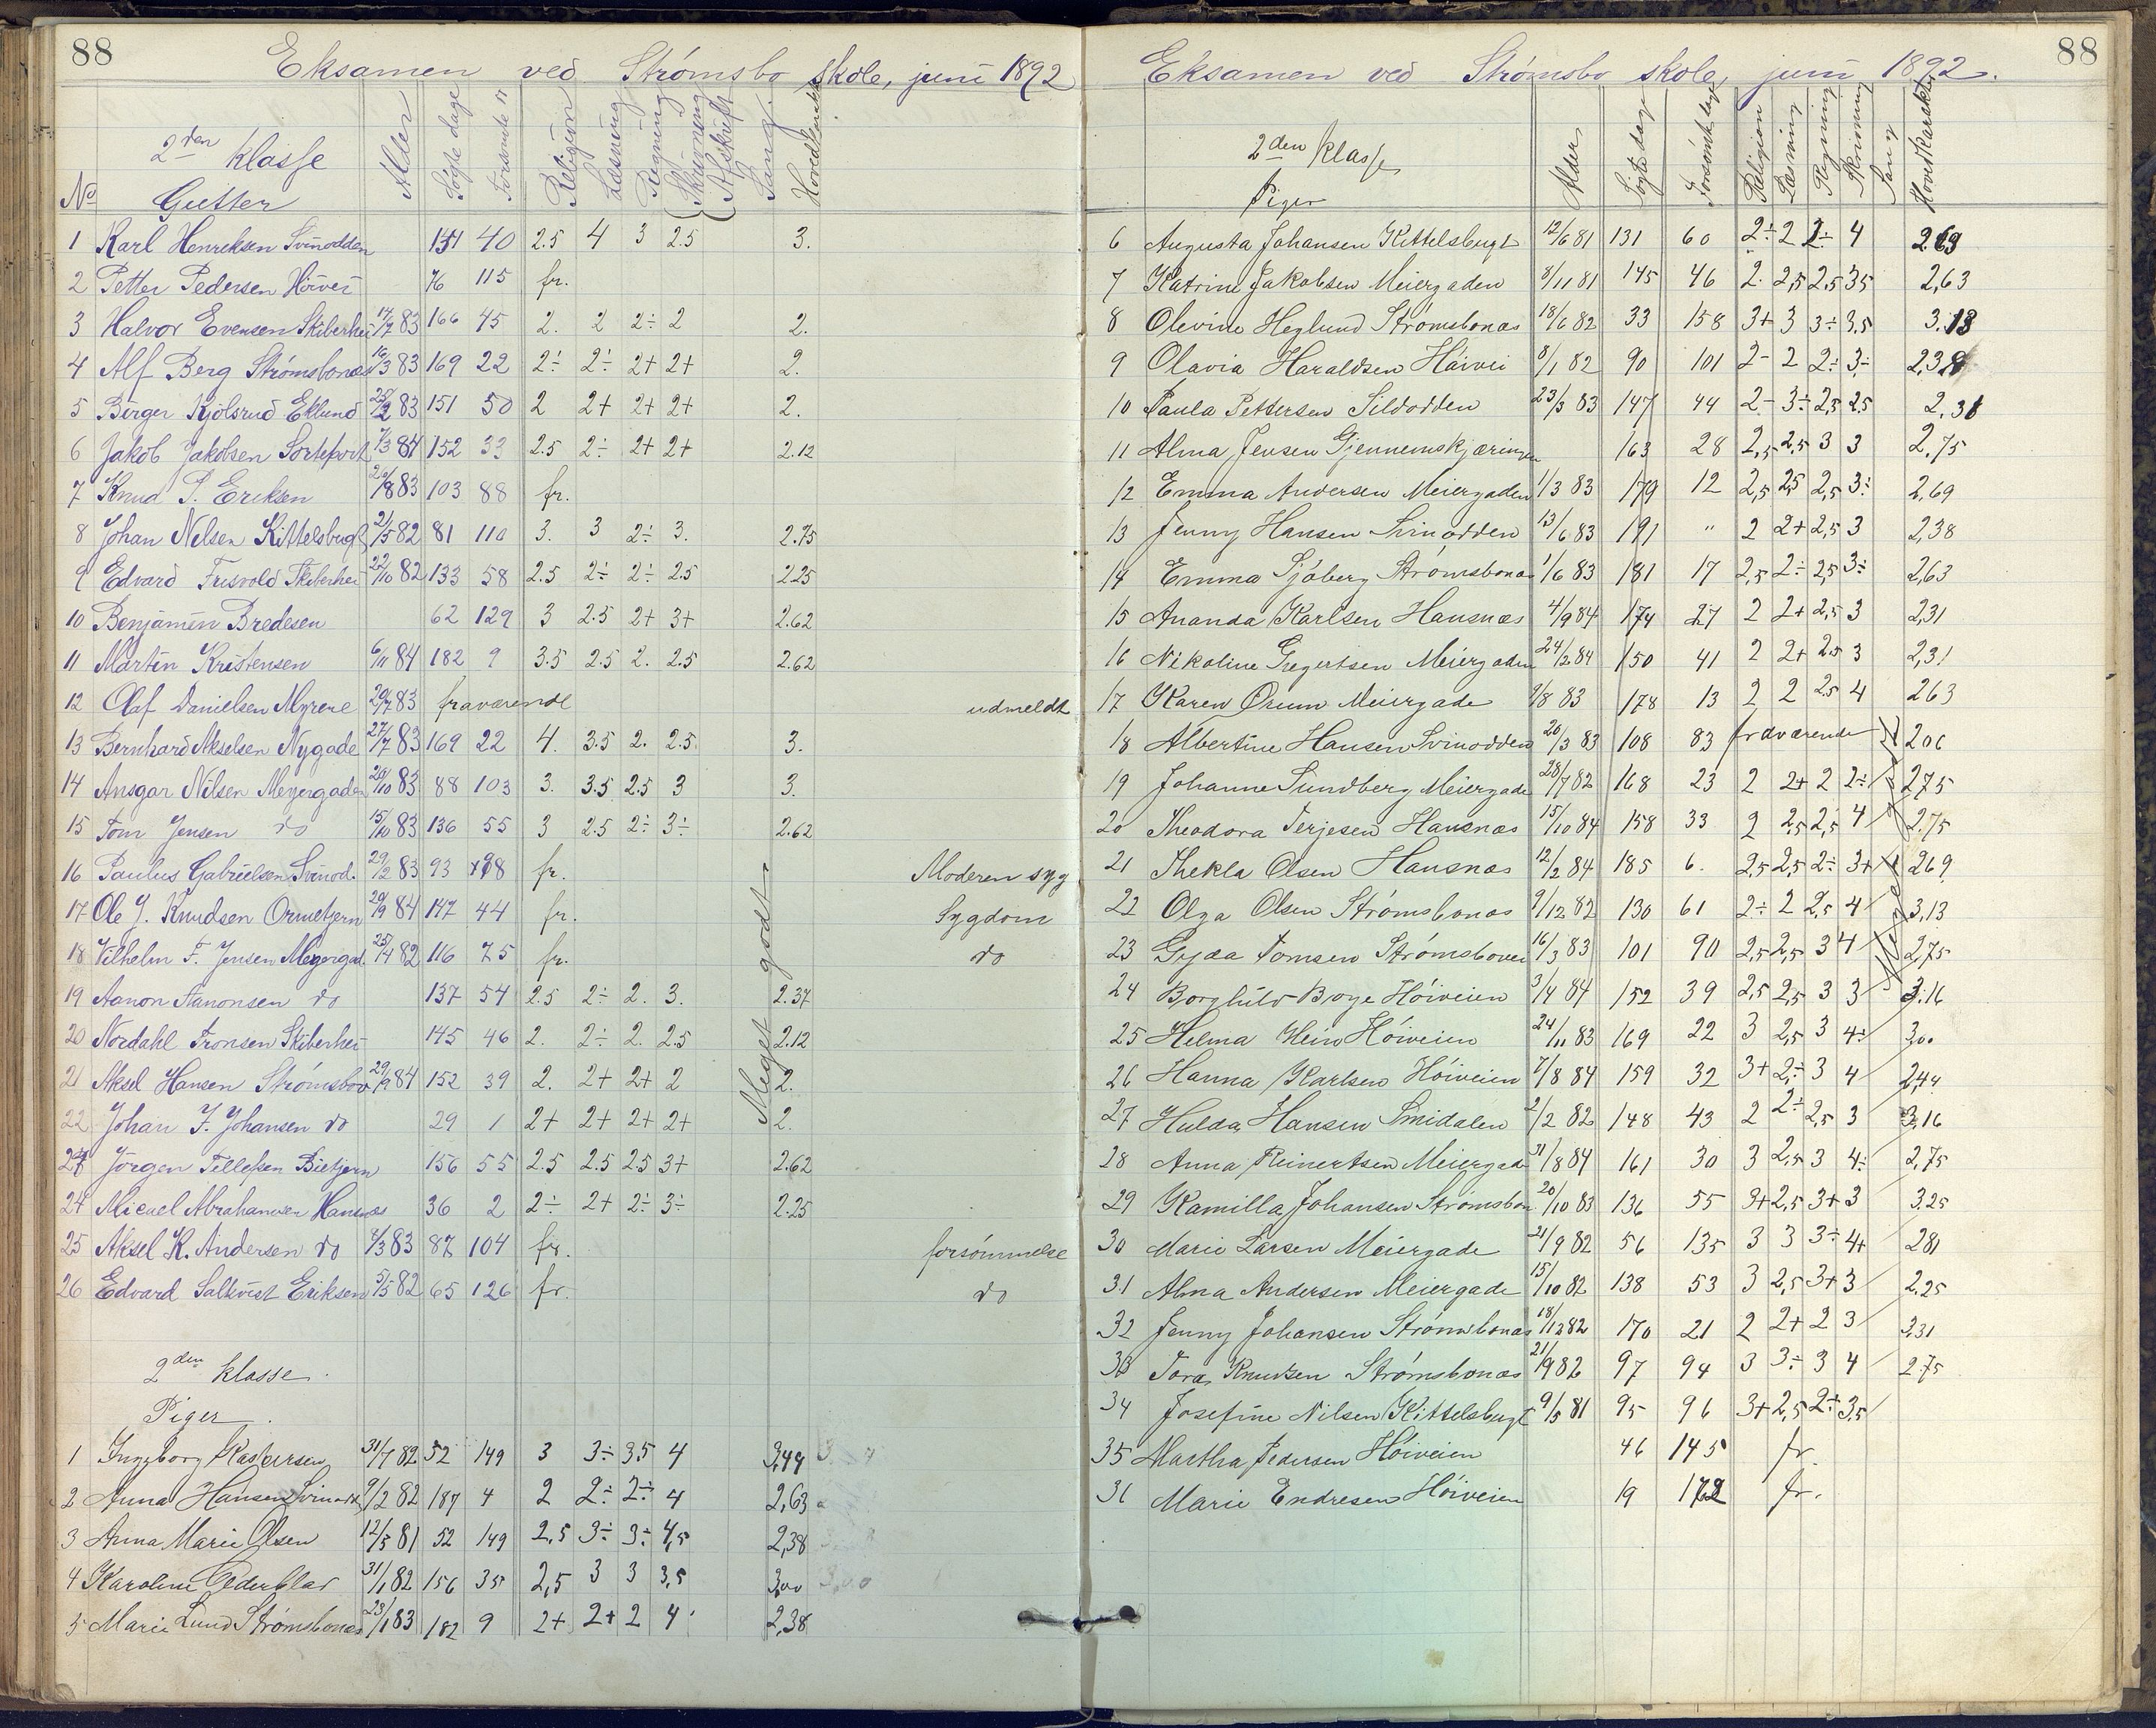 88
Eksamen ved Strømsbo skole, juni 1892
2den klasse
No Gutter Alder Søgte dage Forsømte Religion Læsning Regning Skrivning Afskrift Sang Hovedkarakter
1 Karl Henriksen Svinodden 151 40 2.5 4 3 2.5 3.
2 Petter Pedersen Høivei 76 115 fr.
3 Halvor Evensen Skiberhei 14/7 83 166 45 2. 2 2÷ 2 2.
4 Alf Berg Strømsbonæs 16/3 83 169 22 2÷ 2÷ 2+ 2+ 2.
5 Birger Kjølsrud Eklund 25/2 83 151 50 2 2+ 2+ 2+ 2.
6 Jakob Jakobsen Sorteport 7/3 84 152 33 2.5 2÷ 2+ 2+ 2.12
7 Knud P. Eriksen 20/8 83 103 88 fr.
8 Johan Nilsen Kittelsbugt 2/5 82 81 110 3. 3 2÷ 3. 2.75
9 Edvard Frisvold Skiberhei 22/10 82 133 58 2.5 2÷ 2÷ 2.5 2.25
10 Benjamin Bredesen 62 129 3 2.5 2+ 3+ 2.62
11 Martin Kristensen 6/11 84 182 9 3.5 2.5 2. 2.5 2.62
12 Olaf Danielsen Myrene 20/7 83 fraværende udmeldt
13 Bernhard Akselsen Nygade 27/7 83 169 22 4. 3.5 2. 2.5 3.
14 Ansgar Nilsen Meyergaden 20/10 83 88 103 3. 3.5 2.5 3 3.
15 Tom Jensen do 15/10 83 136 55 3 2.5 2÷ 3÷ 2.62
16 Paulus Gabrielsen Svinod. 29/2 83 93 98 fr. Moderen syg
17 Ole J. Knudsen Ormetjern 20/9 84 147 44 fr. Sygdom
18 Vilhelm F. Jensen Meyergad. 25/4 82 116 75 fr. do
19 Aanon Aanonsen do 137 54 2.5 2÷ 2. 3. 2.37
20 Nordahl Tronsen Skiberhei 145 46 2. 2÷ 2. 2.5 2.12
21 Aksel Hansen Strømsbov 29/9 84 152 39 2. 2+ 2+ 2 2.
22 Johan F. Johansen do 29 1 2+ 2+ 2+ 2+ 2.
23 Jørgen Tellefsen Bietjern 156 55 2.5 2.5 2.5 3+ 2.62
24 Micael Abrahamsen Hansnæs 36 2 2÷ 2+ 2÷ 3÷ 2.25
25 Aksel K. Andersen do 4/3 83 87 104 fr. forsømmelse
26 Edvard Saltkvist Eriksen 5/5 82 65 126 fr. do
Meget godt
2den klasse
Piger
1 Ingeborg Kaspersen 31/7 82 52 149 3 3÷ 3.5 4 3,44
2 Anna Hansen Svinodd 9/2 82 187 4 2 2÷ 2÷ 4 2,63
3 Anna Marie Olsen 12/5 81 52 149 2,5 3÷ 3÷ 4,5 2,38
4 Karoline Cederblad 31/1 82 156 35 2,5 3 3 3,5 3,00
5 Marie Lund Strømsbonæs 23/1 83 182 9 2+ 2+ 2 4 2,38
88
Eksamen ved Strømsbo skole, juni 1892.
2den Klasse
Piger Alder Søgte dage Forsømte dage Religion Læsning Regning Skrivning Sang Hovedkarakter
6 Augusta Johansen Kittelsbugt 12/6 81 131 60 2÷ 2 2÷ 4 2.69
7 Katrine Jakobsen Meiergaden 8/11 81 145 46 2. 2,5 2,5 3,5 2,63
8 Olevine Heglund Strømsbonæs 18/6 82 33 158 3+ 3 3÷ 3,5 3.13
9 Olavia Haraldsen Høivei 8/1 82 90 101 2- 2 2÷ 3÷ 2,38
10 Paula Pettersen Sildodden 23/3 83 147 44 2- 3÷ 2,5 2,5 2,38
11 Alma Jensen Gjennemskjæringen 163 28 2,5 2,5 3 3 2.75
12 Emma Andersen Meiergaden 1/3 83 179 12 2,5 2,5 2,5 3÷ 2,69
13 Jenny Hansen Svinodden 13/6 83 191 " 2 2+ 2,5 3 2,38
14 Emma Sjøberg Strømsbonæs 1/6 83 181 17 2,5 2÷ 2,5 3÷ 2,63
15 Ananda Karlsen Hansnæs 4/9 84 174 27 2 2+ 2,5 3 2,31
16 Nikoline Gregertsen Meiergaden 24/2 84 150 41 2 2+ 2.5 3 2,31
17 Karen Osum Meiergade 9/8 83 178 13 2 2 2.5 4 2 63
18 Albertine Hansen Svinodden 20/3 83 108 83 fraværende 2 06
19 Johanne Sundberg Meiergade 28/7 82 168 23 2 2+ 2 2÷ 2,75
20 Theodora Terjesen Hansnæs 15/10 84 158 33 2 2,5 2,5 4 2.75
21 Thekla Olsen Hansnæs 12/2 84 185 6. 2,5 2,5 2÷ 3+ 2 69
22 Olga Olsen Strømsbonæs 9/12 82 130 61 2÷ 2 2,5 4 3,13
23 Gyda Tomsen Strømsbovei 16/3 83 101 90 2,5 2,5 3 4 2,75
24 Borghild Boye Høiveien 3/4 84 152 39 2,5 2,5 3 3 3.16
25 Helma Hein Høiveien 24/11 83 169 22 3 2,5 3 4÷ 3,00
26 Hanna Karlsen Høiveien 7/8 84 159 32 3+ 2÷ 3 4 2,44
27 Hulda Hansen Smidalen 2/2 82 148 43 2 2÷ 2,5 3 3,16
28 Anna Reinertsen Meiergade 31/8 84 161 30 3 2,5 3 4÷ 2,75
29 Kamilla Johansen Strømsbon 20/10 83 136 55 3+ 2,5 3+ 3 3.25
30 Marie Larsen Meiergade 21/9 82 56 135 3 3 3÷ 4+ 2 81
31 Alma Andersen Meiergade 15/10 82 138 53 3 2,5 3+ 3 2.25
32 Jenny Johansen Strømsbonæs 18/12 82 170 21 2 2+ 2 3 3,31
33 Tora Knudsen Strømsbonæs 21/9 82 97 94 3 3÷ 3 4 2.75
34 Josefine Nilsen Kittelsbugt 9/5 81 95 96 3+ 2,5 2÷ 3,5
35 Martha Pedersen Høiveien 46 145 fr.
36 Marie Endresen Høiveien 19 172 fr.